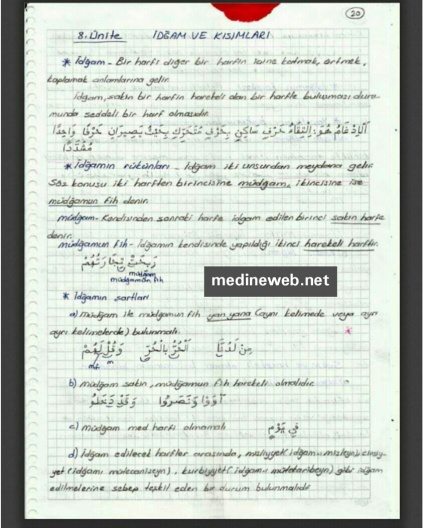 20
8. Ünite İDĞAM VE KISIMLARI
* İdğam - Bir harfi diğer bir harfin içine katmak, örtmek,
kaplamak anlamlarına gelir.
İdğam, sakin bir harfin harekeli olan bir harfle buluşması duru-
munda şeddeli bir harf olmasıdır.
اَلْإِدْغَامُ هُوَ: اِلْتِقَاءُ حَرْفٍ سَاكِنٍ بِحَرْفٍ مُتَحَرِّكٍ بِحَيْثُ يَصِيرَانِ حَرْفًا وَاحِدًا
مُشَدَّدًا
* İdğamın rükünları - İdğam iki unsurdan meydana gelir.
Söz konusu iki harften birincisine müdğam, ikincisine ise
müdğamun fih denir.
müdğam - Kendisinden sonraki harfe idğam edilen birinci sakin harfe
denir.
müdğamun fih - İdğamın kendisinde yapıldığı ikinci harekeli harftir.
رَبِحَتْ تِجَارَتُهُمْ
müdğam
müdğamun fih
medineweb.net
* İdğamın şartları
a) müdğam ile müdğamun fih yan yana (aynı kelimede veya ayrı
ayrı kelimelerde) bulunmalı.
مِنْ لَدُنَّا اَلْحُرُّ بِالْحُرِّ وَقُلْ لَهُمْ
mf m
b) müdğam sakin, müdğamun fih harekeli olmalıdır.
آوَوْا وَنَصَرُوا
c) müdğam med harfi olmamalı فِي يَوْمٍ
d) İdğam edilecek harfler arasında, misliyyet (idğam-ı misleyn), cinsiy-
yet (idğamı mütecaniseyn), kurbiyyet (idğam-ı mütekaribeyn) gibi idğam
edilmelerine sebep teşkil eden bir durum bulunmalıdır.